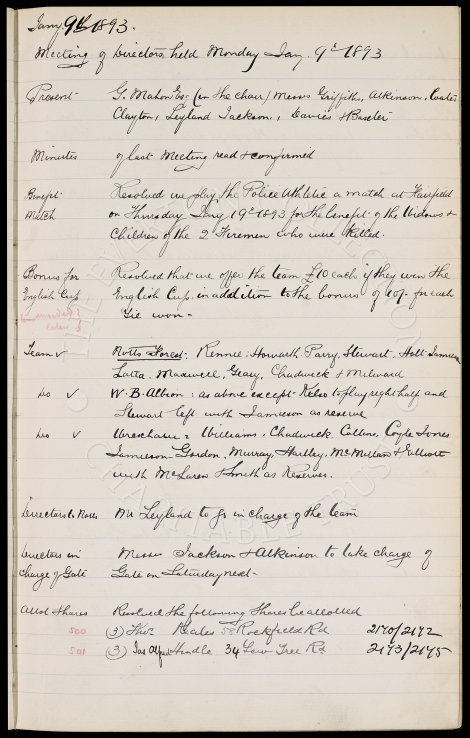 Jany 9th 1893.
Meeting of Directors held Monday Jan. 9th 1893
Present G. Mahon Esq (in the chair) Messrs Griffiths, Atkinson, Coates
Clayton, Leyland Jackson, Davies & Baxter
Minutes of last Meeting read & confirmed
Benefit Resolved we play the Police Athletic a match at Fairfield
Match on Thursday Jany 19th 1893 for the benefit of the Widows &
Children of the 2 Firemen who were killed.
Bonus for Resolved that we offer the team £10 each if they win the
English Cup English Cup in addition to the bonus of 10/- for each
tie won -
Team v Notts Forest: Rennie: Howarth. Parry, Stewart. Holt Jamieson
Latta. Maxwell, Geary, Chadwick & Milward
Do v W. B. Albion: as above except Kelso to play right half and
Stewart left with Jamieson as reserve
Do v Wrexham: Williams. Chadwick Collins, Coyle Jones
Jamieson Gordon, Murray, Hartley, McMillan & Elliott
with McLaren & Smith as Reserves.
Directors to Notts Mr Leyland to go in charge of the team
Directors in Messrs Jackson & Atkinson to take charge of
Charge of Gate Gate on Saturday next -
Allot Shares Resolved the following Shares be allotted
500 (3) Thos Keates 58 Rockfield Rd 2170/2172
501 (3) Jas Alfred Hindle 34 Low Tree Rd 2173/2175